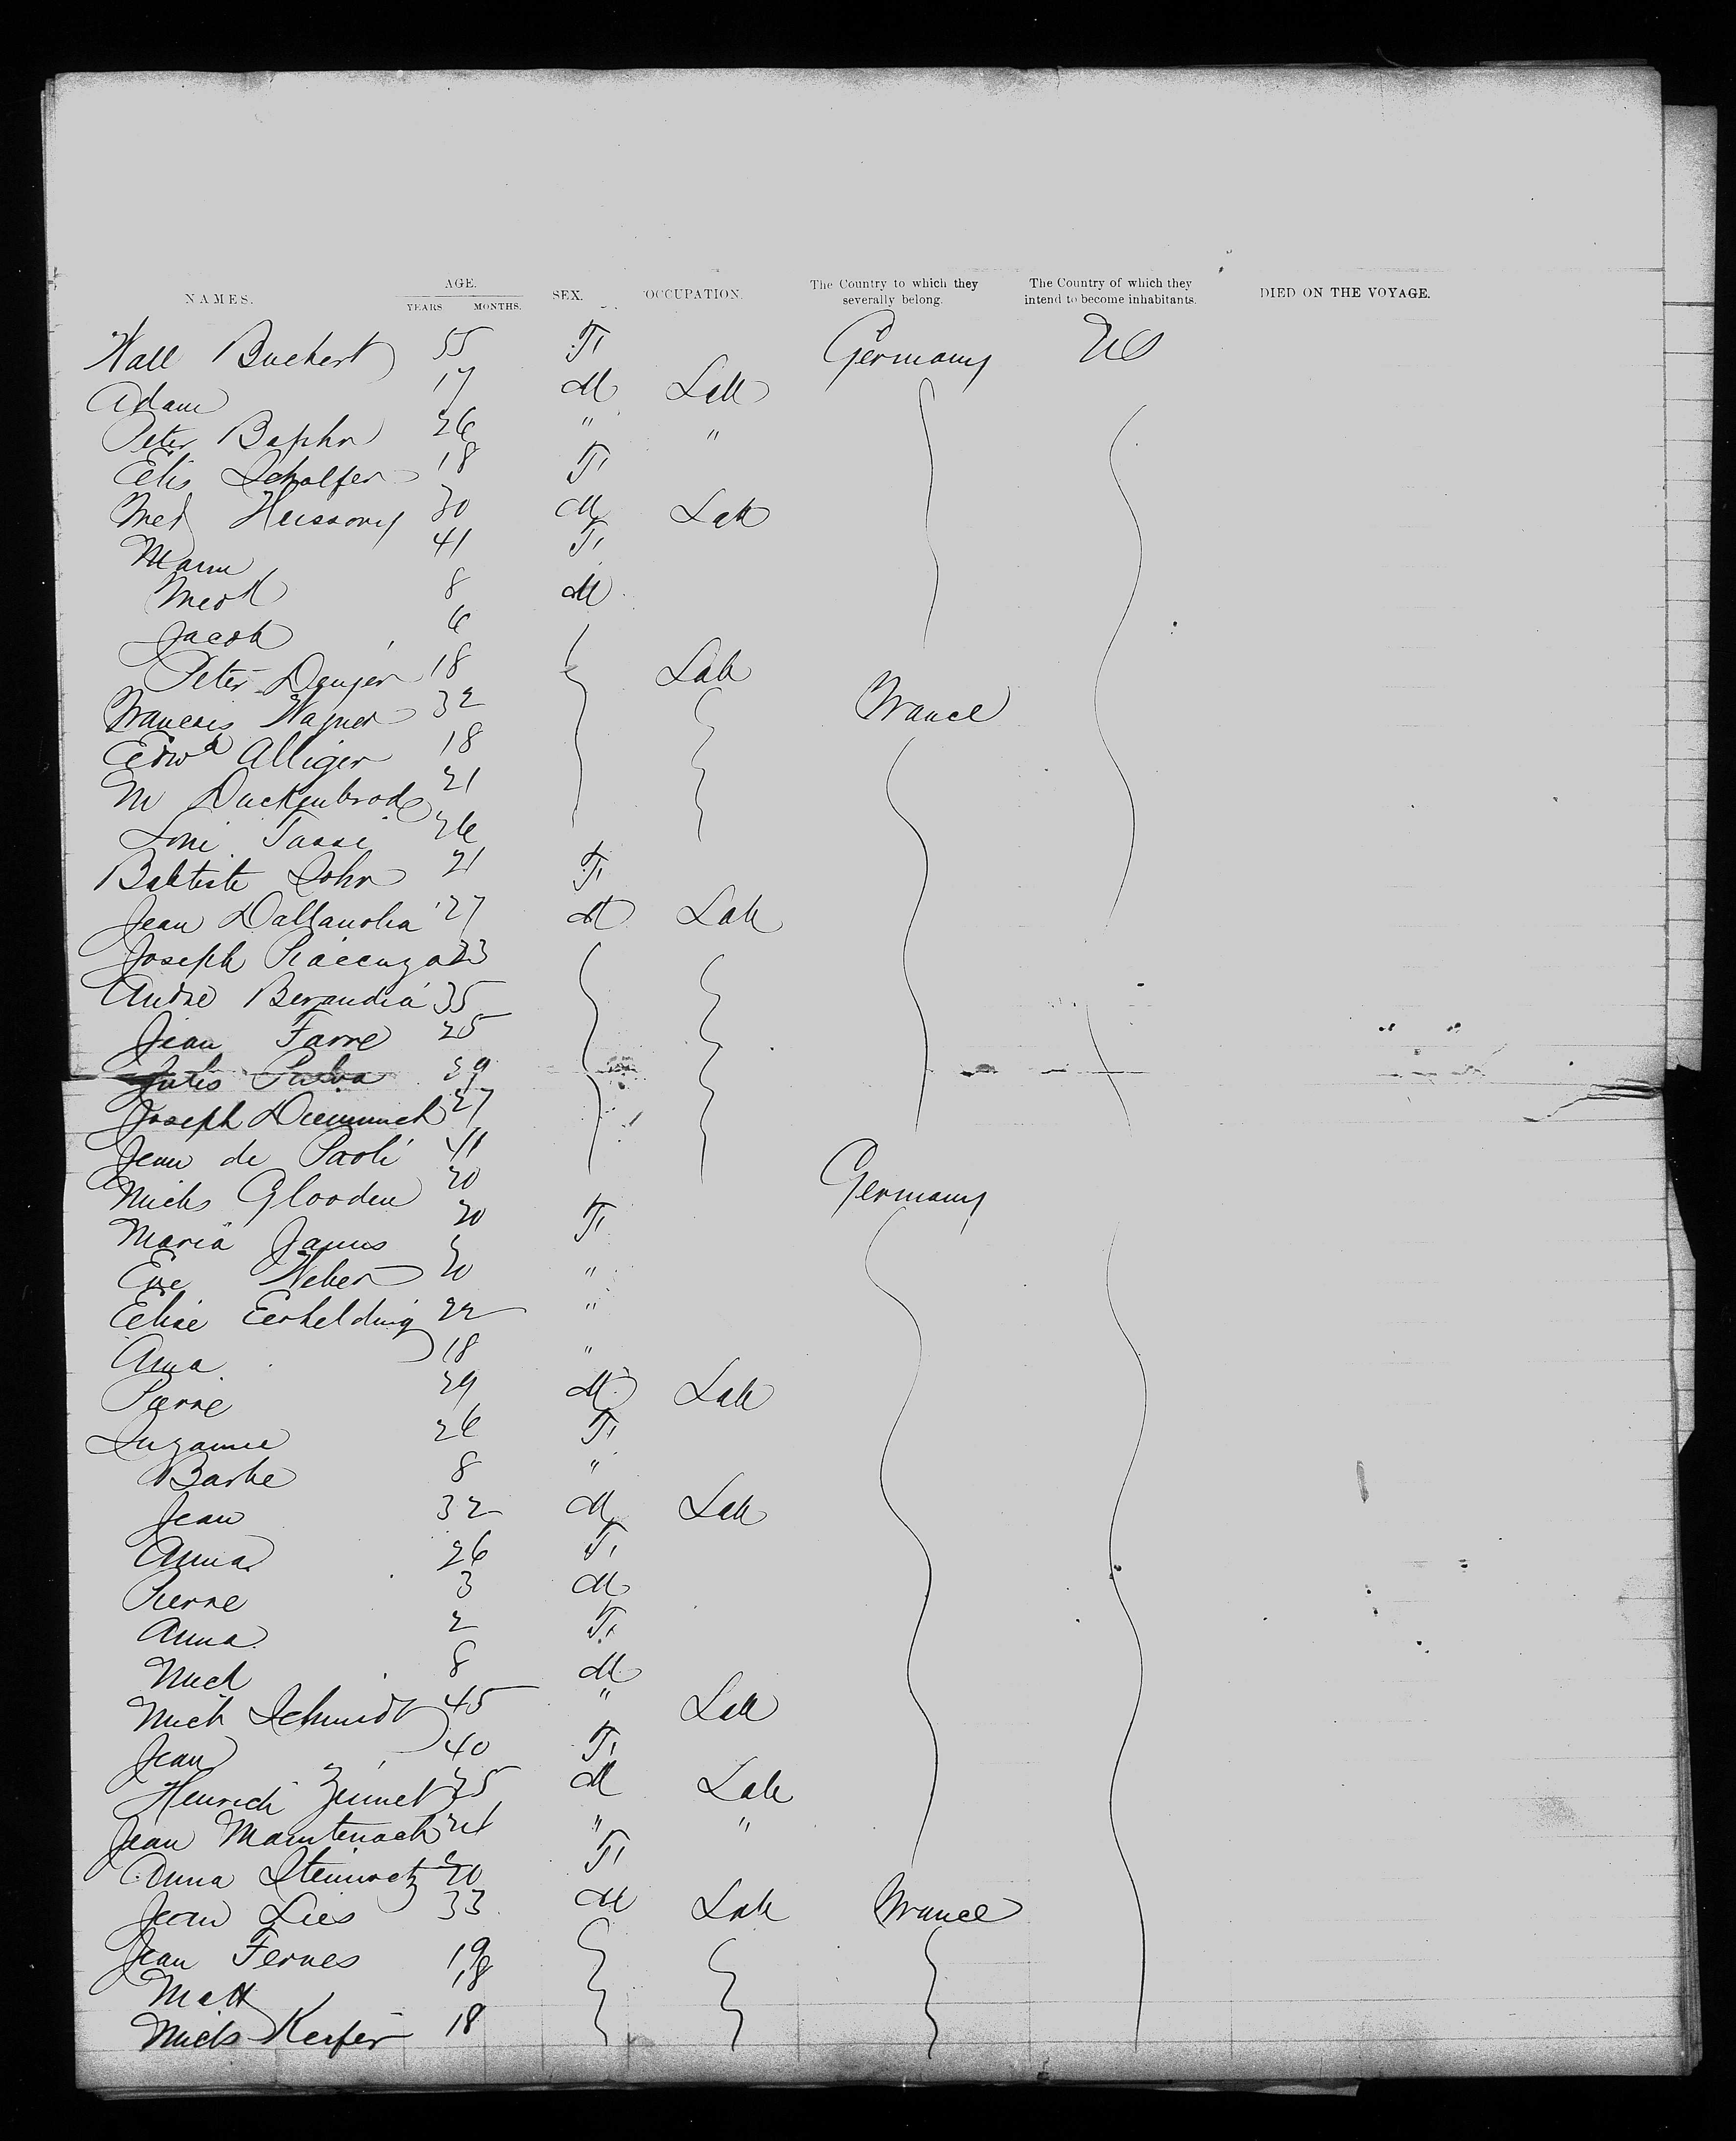 NAMES. AGE. YEARS MONTHS. SEX. OCCUPATION. The Country to which they severally belong. The Country of which they intend to become inhabitants. DIED ON THE VOYAGE.
Wall Buchert 55 F Germany US
Adam 17 M Lab
Peter Baphr 26 " "
Elis Scholfer 18 F
Med Heissony 30 M Lab
Mann 41 F
8 M
Jacob 6
Peter Denger 18 Lab
Francois Wagner 32 France
Edwd Alliger 18
M Duckenbrod 21
Loni Tassi 26
Babtiste Sohn 21 F
Jean Dallanolia 27 M Lab
Joseph Piacenza 23
Andre Berandia 35
Jean Farre 25
Jules Salva 39
Joseph 27
Jean de Paoli 41
Michs Glooden 20 Germany
Maria Janus 20 F
Eve Weber 20 "
Elise Eerhelding 22 "
Anna 18 "
Pierre 29 M Lab
Suzanne 26 F
Barbe 8 "
Jean 32 M Lab
Anna 26 F
Pierre 3 M
Anna 2 F
Mich 8 M
Mich Schmidt 45 " Lab
Jean 40 F
Henrich Zimmet 25 M Lab
Jean Mamtenach 24 " "
Anna Steinmetz 20 F
Jean Lies 33 M Lab France
Jean Fernes 19
Matt 18
Michs Keifer 18